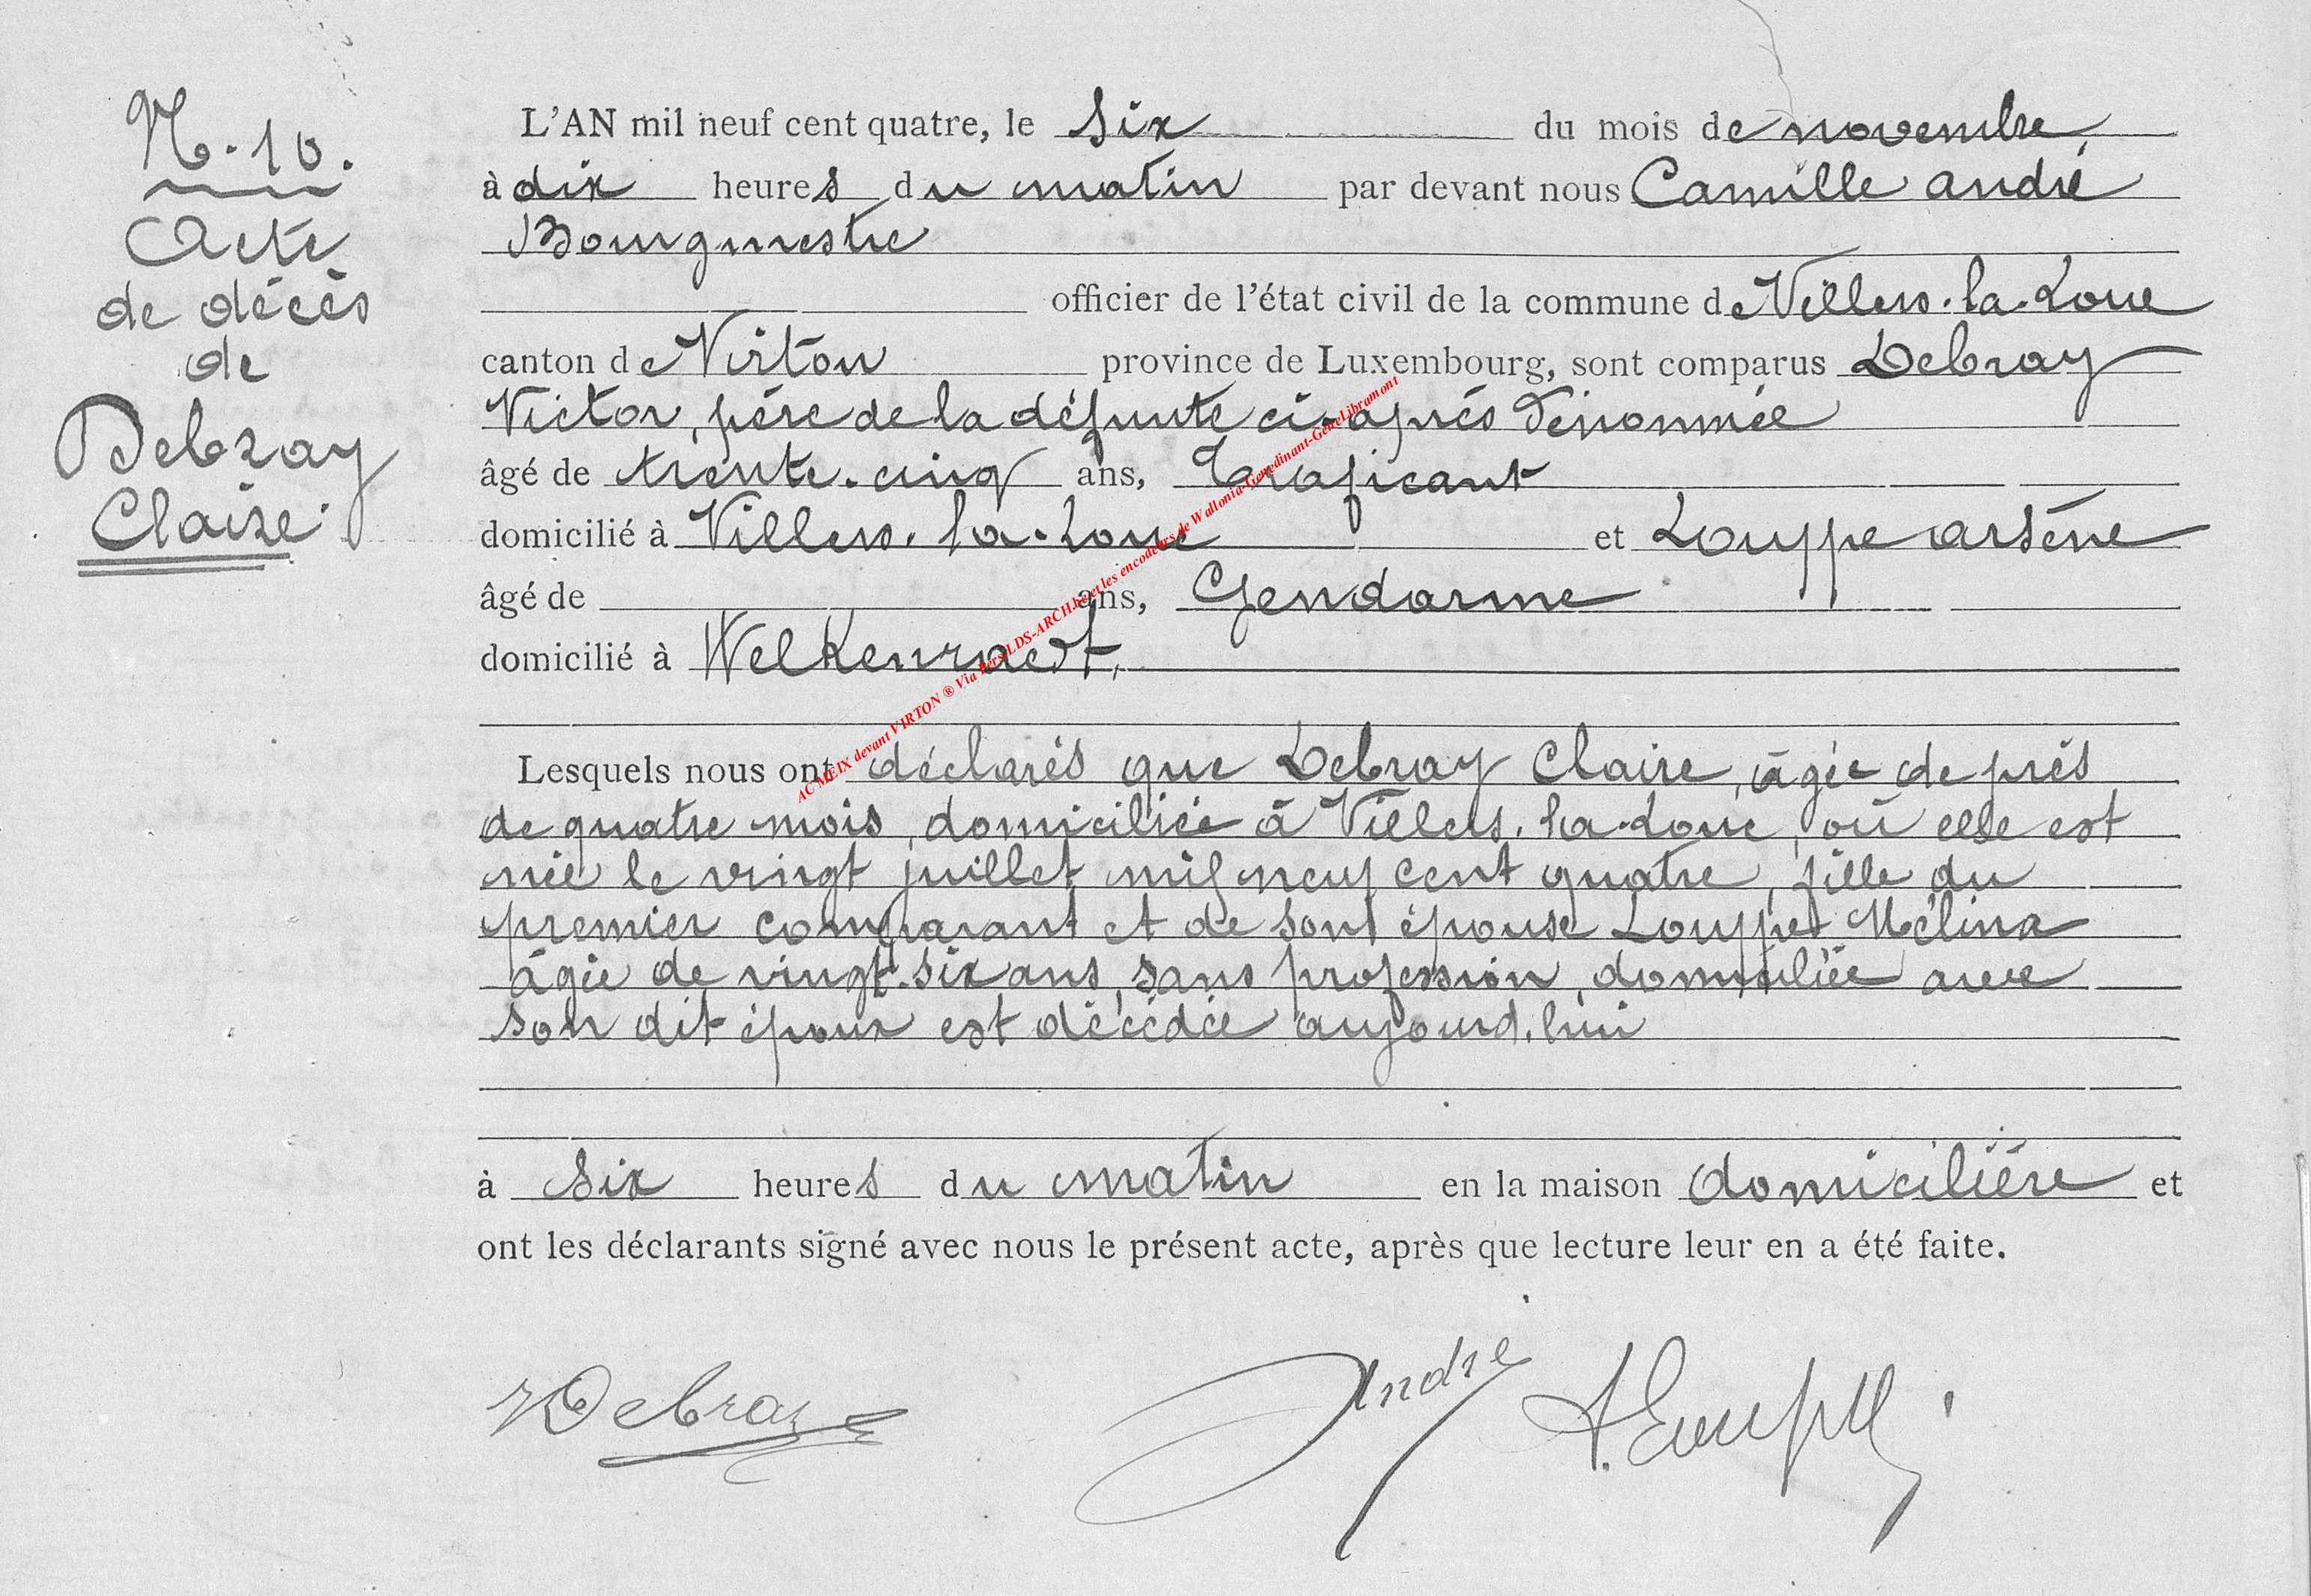 N. 10.
Acte
de décès
de
Debray
Claire.
L'AN mil neuf cent quatre, le six du mois de novembre,
à dix heures du matin par devant nous Camille André
Bourgmestre
officier de l'état civil de la commune de Villers-la-Loue
canton de Virton province de Luxembourg, sont comparus Debray
Victor, père de la défunte ci-après dénommée
âgé de trente-cinq ans, Traficant
domicilié à Villers-la-Loue et Louppe Arsène
âgé de ans, Gendarme
domicilié à Welkenraedt,
Lesquels nous ont déclarés que Debray Claire, âgée de près
de quatre mois, domiciliée à Villers-la-Loue, où elle est
née le vingt juillet mil neuf cent quatre, fille du
premier comparant et de son épouse Louppe Mélina
âgée de vingt-six ans, sans profession, domiciliée avec
son dit époux est décédée aujourd'hui
à six heures du matin en la maison domicilière et
ont les déclarants signé avec nous le présent acte, après que lecture leur en a été faite.
VDebray André A. Louppe
AC MEIX devant VIRTON ® Via Pers LDS-ARCH.be et les encodeurs de Wallonia-Genedinant-GeneLibramont